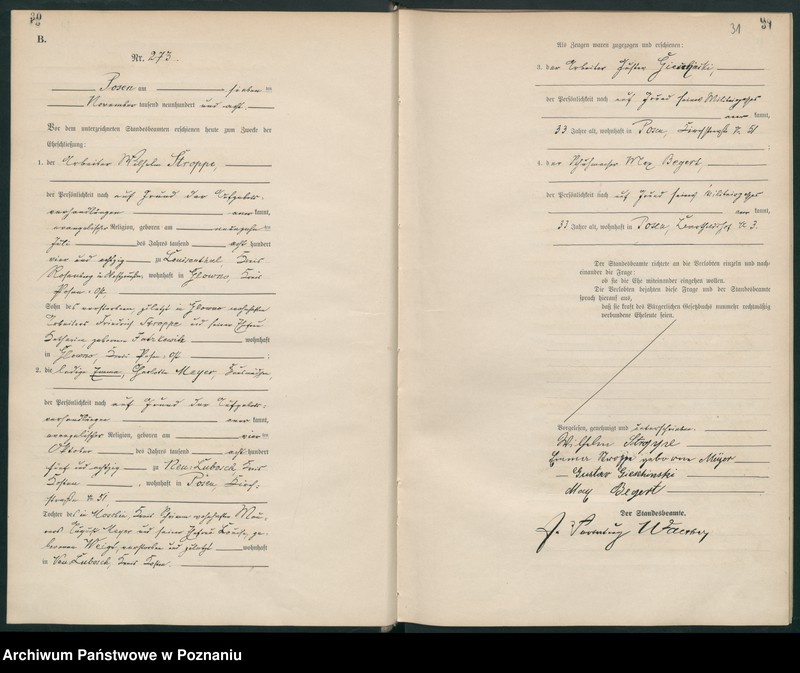 B.
Nr. 273.
Posen am sieben ten
November tausend neunhundert und acht.
Vor dem unterzeichneten Standesbeamten erschienen heute zum Zwecke der
Eheschließung:
1. der Arbeiter Wilhelm Stroppe,
der Persönlichkeit nach auf Grund der Aufgebots-
verhandlungen aner kannt,
evangelischer Religion, geboren am
Juli des Jahres tausend acht hundert
vier und achtzig zu Louisenthal, Kreis
Rosenberg in Westpreußen, wohnhaft in Glowno, Kreis
Posen-Ost,
Sohn des verstorbenen, zuletzt in Glowno wohnhaften
Arbeiters Friedrich Stroppe und seiner Ehefrau
Katharina, geborenen wohnhaft
in Glowno, Kreis Posen-Ost ;
2. die ledige Emma, Charlotte Meyer,
der Persönlichkeit nach auf Grund der Aufgebots-
verhandlungen aner kannt,
evangelischer Religion, geboren am vier ten
Oktober des Jahres tausend acht hundert
fünf und achtzig zu Neu-Lubosch, Kreis
Kosten, wohnhaft in Posen, Kirch-
straße № 51
Tochter des in Moschin, Kreis Schrimm wohnhaften Mau-
rers August Meyer und seiner Ehefrau Louise, ge-
borenen Weigt, verstorben und zuletzt wohnhaft
in Neu-Lubosch, Kreis Kosten.
31
Als Zeugen waren zugezogen und erschienen:
3. der Arbeiter Gustav
der Persönlichkeit nach auf Grund seines Militärpasses
aner kannt,
33 Jahre alt, wohnhaft in Posen, Kirchstraße № 51
;
4. der Schuhmacher Max Begert,
der Persönlichkeit nach auf Grund seines Militärpasses
aner kannt,
Jahre alt, wohnhaft in Posen, № 3.
Der Standesbeamte richtete an die Verlobten einzeln und nach-
einander die Frage:
ob sie die Ehe miteinander eingehen wollen.
Die Verlobten bejahten diese Frage und der Standesbeamte
sprach hierauf aus,
daß sie kraft des Bürgerlichen Gesetzbuchs nunmehr rechtmäßig
verbundene Eheleute seien.
Vorgelesen, genehmigt und unterschrieben.
Wilhelm Stroppe
Emma Stroppe geborene Meyer
Gustav
Max Begert
Der Standesbeamte.
Archiwum Państwowe w Poznaniu